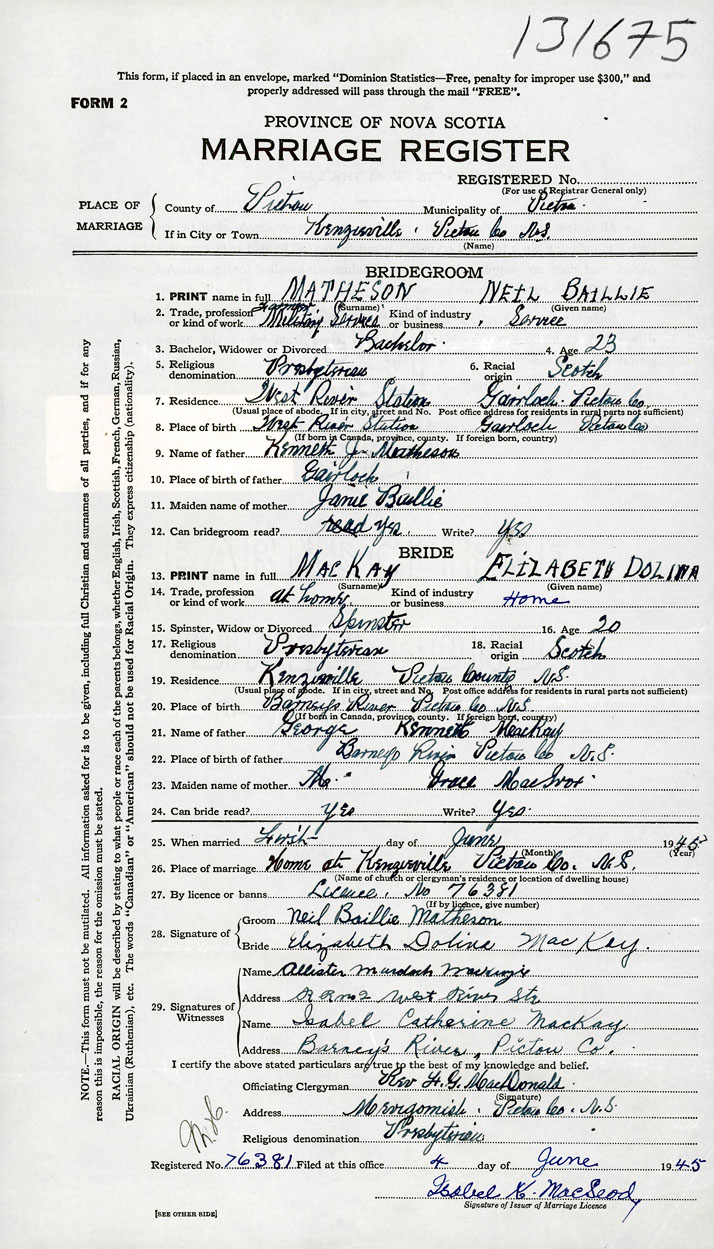 131675
This form, if placed in an envelope, marked "Dominion Statistics—Free, penalty for improper use $300," and
properly addressed will pass through the mail "FREE".
FORM 2
PROVINCE OF NOVA SCOTIA
MARRIAGE REGISTER
REGISTERED No.
(For use of Registrar General only)
PLACE OF MARRIAGE
County of Pictou Municipality of Pictou
If in City or Town Kenzieville Pictou Co N.S.
(Name)
BRIDEGROOM
1. PRINT name in full MATHESON NEIL BAILLIE
(Surname) (Given name)
Farmer
2. Trade, profession or kind of work Military Service Kind of industry or business Service
3. Bachelor, Widower or Divorced Bachelor 4. Age 23
5. Religious denomination Presbyterian 6. Racial origin Scotch
7. Residence West River Station Gairloch Pictou Co.
(Usual place of abode. If in city, street and No. Post office address for residents in rural parts not sufficient)
8. Place of birth West River Station Gairloch Pictou Co
(If born in Canada, province, county. If foreign born, country)
9. Name of father Kenneth J. Matheson
10. Place of birth of father Gairloch
11. Maiden name of mother Janie Baillie
12. Can bridegroom read? read yes. Write? yes
BRIDE
13. PRINT name in full MACKAY ELIZABETH DOLINA
(Surname) (Given name)
14. Trade, profession or kind of work at home Kind of industry or business Home
15. Spinster, Widow or Divorced Spinster 16. Age 20
17. Religious denomination Presbyterian 18. Racial origin Scotch
19. Residence Kenzieville Pictou County N.S.
(Usual place of abode. If in city, street and No. Post office address for residents in rural parts not sufficient)
20. Place of birth Barneys River Pictou Co N.S.
(If born in Canada, province, county. If foreign born, country)
21. Name of father George Kenneth MacKay
22. Place of birth of father Barneys River Pictou Co N.S.
23. Maiden name of mother Grace MacIvor
24. Can bride read? yes Write? Yes
25. When married day of June 1945
(Month) (Year)
26. Place of marriage Home at Kenzieville Pictou Co. N.S.
(Name of church or clergyman's residence or location of dwelling house)
27. By licence or banns Licence. No 76381
(If by licence, give number)
28. Signature of
Groom Neil Baillie Matheson
Bride Elizabeth Dolina MacKay.
29. Signatures of Witnesses
Name Allister Murdoch MacKenzie
Address R R no 2 West River Stn
Name Isabel Catherine MacKay
Address Barney's River, Pictou Co.
I certify the above stated particulars are true to the best of my knowledge and belief.
Officiating Clergyman Rev MacDonald
(Signature)
Address Merigomish. Pictou Co. N.S
Religious denomination Presbyterian
Registered No. 76381 Filed at this office 4 day of June 1945
Isabel K. MacLeod
Signature of Issuer of Marriage Licence
[SEE OTHER SIDE]
NOTE.—This form must not be mutilated. All information asked for is to be given, including full Christian and surnames of all parties, and if for any
reason this is impossible, the reason for the omission must be stated.
RACIAL ORIGIN will be described by stating to what people or race each of the parents belongs, whether English, Irish, Scottish, French, German, Russian,
Ukrainian (Ruthenian), etc. The words "Canadian" or "American" should not be used for Racial Origin. They express citizenship (nationality).